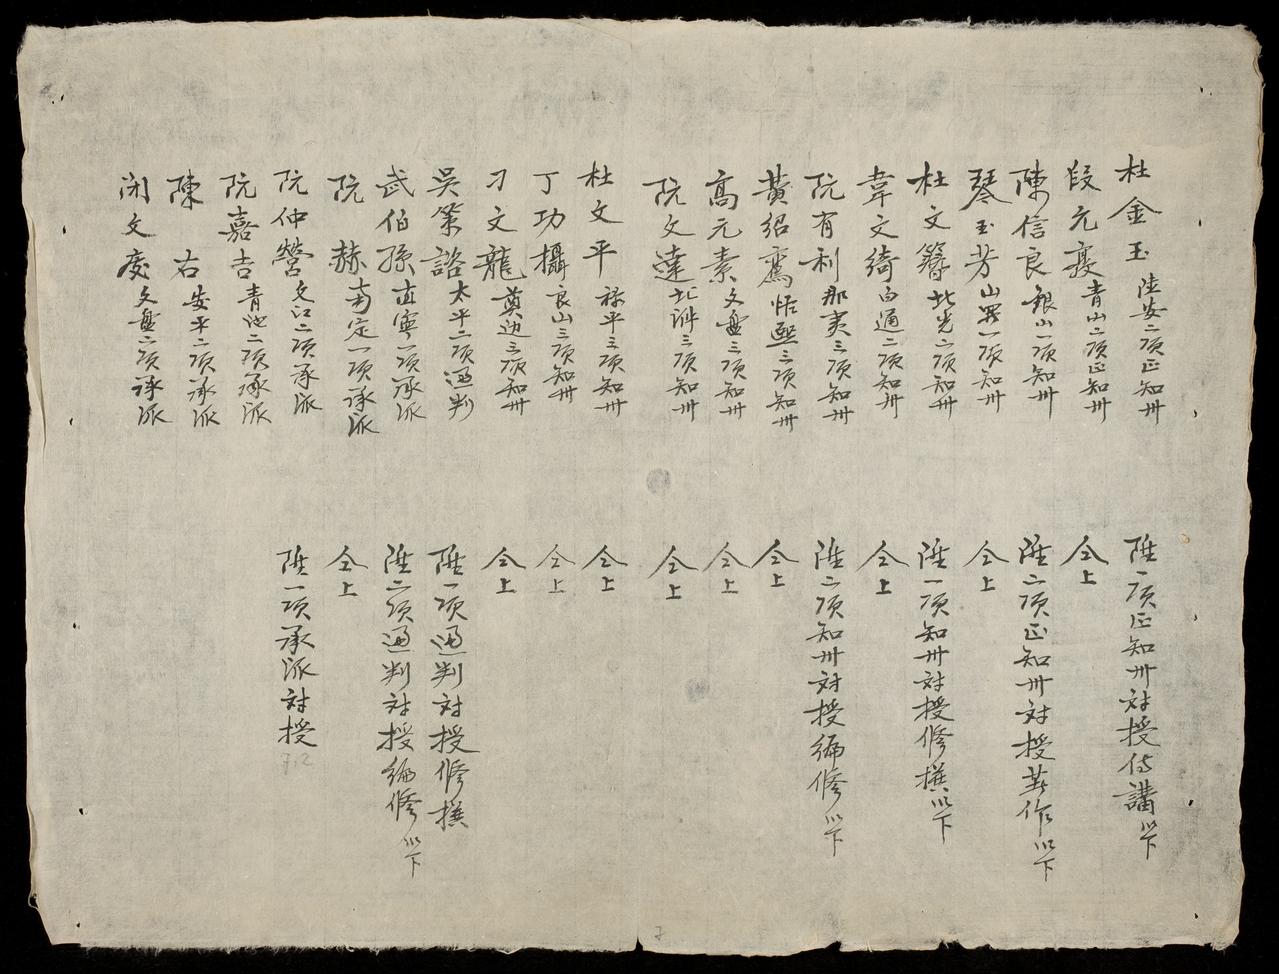 杜金玉 陸安二項正知卅 陞一項正知卅対授侍講以下
段元襄 青山二項正知卅 仝上
陳信良 銀山一項知卅 陞二項正知卅対授著作以下
琴玉芳 山羅一項知卅 仝上
杜文簪 北光二項知卅 陞一項知卅対授修撰以下
韋文綺 白通二項知卅 仝上
阮有利 那夷三項知卅 陞二項知卅対授編修以下
黃紹鸞 恬熙三項知卅 仝上
高元素 文盤三項知卅 仝上
阮文達 北 三項知卅 仝上
杜文平 祿平三項知卅 仝上
丁功攝 良山三項知卅 仝上
刁文龍 奠边三項知卅 仝上
吳策諮 太平二項通判 陞一項通判対授修撰
武伯孫 直寧一項承派 陞二項通判対授編修以下
阮赫 南定一項承派 仝上
阮仲瑩 文江二項承派 陞一項承派対授
阮嘉吉 青池二項承派
陳右 安平二項承派
閉文度 文盤二項承派